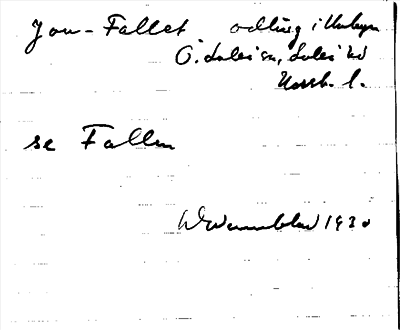 Jon-Fallet odling i Unbyn
Ö. Luleå sn, Luleå hd
Norrb. l.
se Fallen
W Wennblad 1930